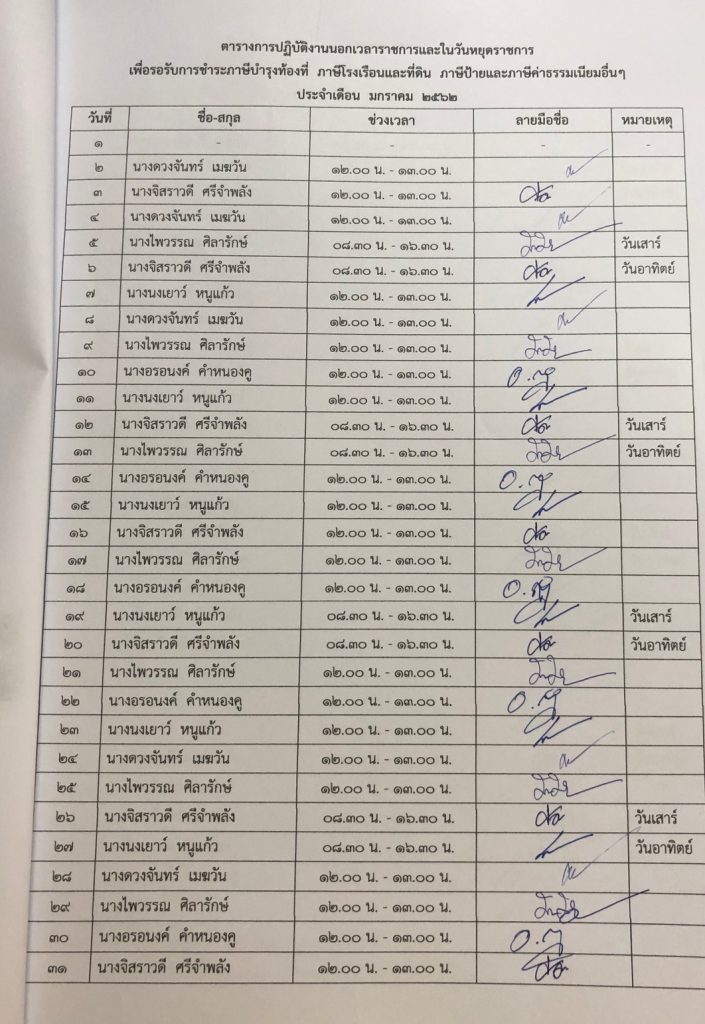 ตารางการปฏิบัติงานนอกเวลาราชการและในวันหยุดราชการ
เพื่อรอรับการชำระภาษีบำรุงท้องที่ ภาษีโรงเรือนและที่ดิน ภาษีป้ายและภาษีค่าธรรมเนียมอื่นๆ
ประจำเดือน มกราคม ๒๕๖๒
วันที่ ชื่อ-สกุล ช่วงเวลา ลายมือชื่อ หมายเหตุ
๑ - - - -
๒ นางดวงจันทร์ เมฆวัน ๑๒.๐๐ น. - ๑๓.๐๐ น.
๓ นางจิสราวดี ศรีจำพลัง ๑๒.๐๐ น. - ๑๓.๐๐ น.
๔ นางดวงจันทร์ เมฆวัน ๑๒.๐๐ น. - ๑๓.๐๐ น.
๕ นางไพวรรณ ศิลารักษ์ ๐๘.๓๐ น. - ๑๖.๓๐ น. วันเสาร์
๖ นางจิสราวดี ศรีจำพลัง ๐๘.๓๐ น. - ๑๖.๓๐ น. วันอาทิตย์
๗ นางนงเยาว์ หนูแก้ว ๑๒.๐๐ น. - ๑๓.๐๐ น.
๘ นางดวงจันทร์ เมฆวัน ๑๒.๐๐ น. - ๑๓.๐๐ น.
๙ นางไพวรรณ ศิลารักษ์ ๑๒.๐๐ น. - ๑๓.๐๐ น.
๑๐ นางอรอนงค์ คำหนองคู ๑๒.๐๐ น. - ๑๓.๐๐ น.
๑๑ นางนงเยาว์ หนูแก้ว ๑๒.๐๐ น. - ๑๓.๐๐ น.
๑๒ นางจิสราวดี ศรีจำพลัง ๐๘.๓๐ น. - ๑๖.๓๐ น. วันเสาร์
๑๓ นางไพวรรณ ศิลารักษ์ ๐๘.๓๐ น. - ๑๖.๓๐ น. วันอาทิตย์
๑๔ นางอรอนงค์ คำหนองคู ๑๒.๐๐ น. - ๑๓.๐๐ น.
๑๕ นางนงเยาว์ หนูแก้ว ๑๒.๐๐ น. - ๑๓.๐๐ น.
๑๖ นางจิสราวดี ศรีจำพลัง ๑๒.๐๐ น. - ๑๓.๐๐ น.
๑๗ นางไพวรรณ ศิลารักษ์ ๑๒.๐๐ น. - ๑๓.๐๐ น.
๑๘ นางอรอนงค์ คำหนองคู ๑๒.๐๐ น. - ๑๓.๐๐ น.
๑๙ นางนงเยาว์ หนูแก้ว ๐๘.๓๐ น. - ๑๖.๓๐ น. วันเสาร์
๒๐ นางจิสราวดี ศรีจำพลัง ๐๘.๓๐ น. - ๑๖.๓๐ น. วันอาทิตย์
๒๑ นางไพวรรณ ศิลารักษ์ ๑๒.๐๐ น. - ๑๓.๐๐ น.
๒๒ นางอรอนงค์ คำหนองคู ๑๒.๐๐ น. - ๑๓.๐๐ น.
๒๓ นางนงเยาว์ หนูแก้ว ๑๒.๐๐ น. - ๑๓.๐๐ น.
๒๔ นางดวงจันทร์ เมฆวัน ๑๒.๐๐ น. - ๑๓.๐๐ น.
๒๕ นางไพวรรณ ศิลารักษ์ ๑๒.๐๐ น. - ๑๓.๐๐ น.
๒๖ นางจิสราวดี ศรีจำพลัง ๐๘.๓๐ น. - ๑๖.๓๐ น. วันเสาร์
๒๗ นางนงเยาว์ หนูแก้ว ๐๘.๓๐ น. - ๑๖.๓๐ น. วันอาทิตย์
๒๘ นางดวงจันทร์ เมฆวัน ๑๒.๐๐ น. - ๑๓.๐๐ น.
๒๙ นางไพวรรณ ศิลารักษ์ ๑๒.๐๐ น. - ๑๓.๐๐ น.
๓๐ นางอรอนงค์ คำหนองคู ๑๒.๐๐ น. - ๑๓.๐๐ น.
๓๑ นางจิสราวดี ศรีจำพลัง ๑๒.๐๐ น. - ๑๓.๐๐ น.